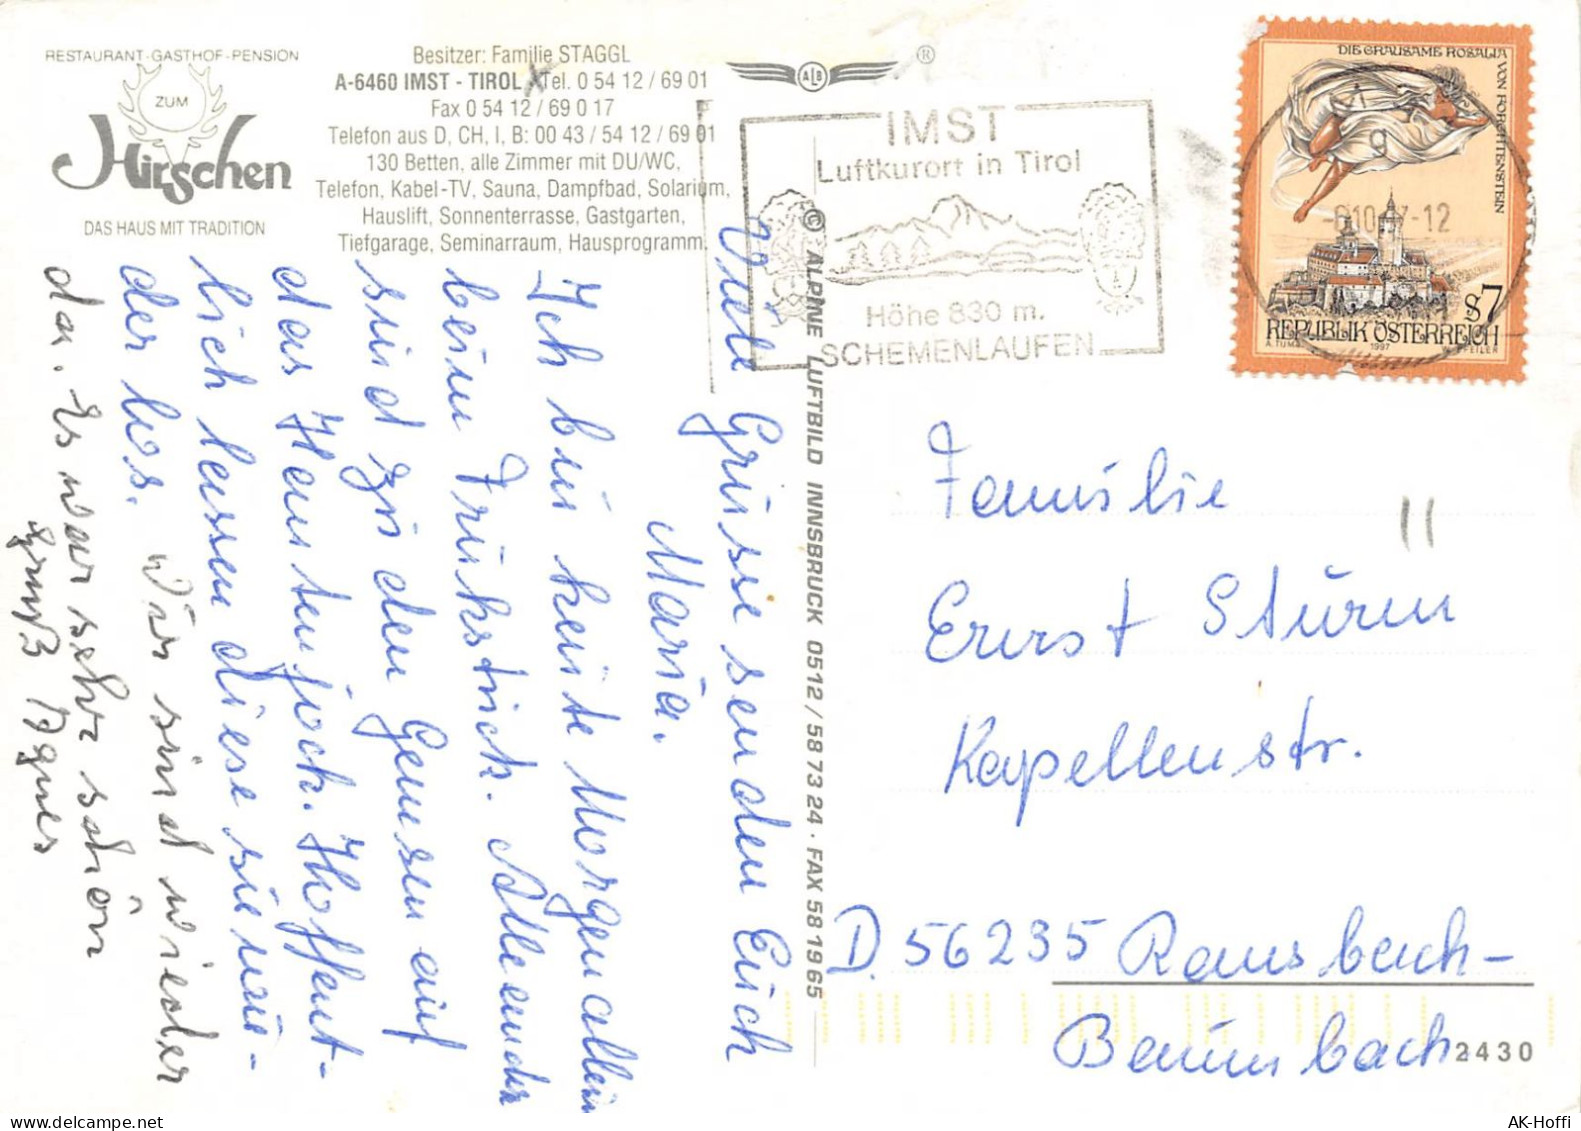 RESTAURANT-GASTHOF-PENSION
ZUM
Hirschen
DAS HAUS MIT TRADITION
Besitzer: Familie STAGGL
A-6460 IMST - TIROL Tel. 0 54 12 / 69 01
Fax 0 54 12 / 69 0 17
Telefon aus D, CH, I, B: 00 43 / 54 12 / 69 01
130 Betten, alle Zimmer mit DU/WC,
Telefon, Kabel-TV, Sauna, Dampfbad, Solarium,
Hauslift, Sonnenterrasse, Gastgarten,
Tiefgarage, Seminarraum, Hausprogramm.
ALB
®
IMST
Luftkurort in Tirol
Höhe 830 m.
SCHEMENLAUFEN
DIE GRAUSAME ROSALIA VON FORCHTENSTEIN
S7
REPUBLIK ÖSTERREICH
1997
© ALPINE LUFTBILD INNSBRUCK 0512 / 58 73 24 · FAX 58 19 65
Viele Grüsse senden Euch
Maria.
Ich bin heute Morgen allein
beim Frühstück. Alle andr
sind zu den Gemsen auf
das Hantenjoch. Hoffent-
lich lassen diese sie wie-
der los.
Wir sind wieder
da. Es war sehr schön
gruß Agnes
Familie
Ernst Stürm
Kapellenstr.
D. 56235 Ransbach-
Baumbach
2430
AK-Hoffi